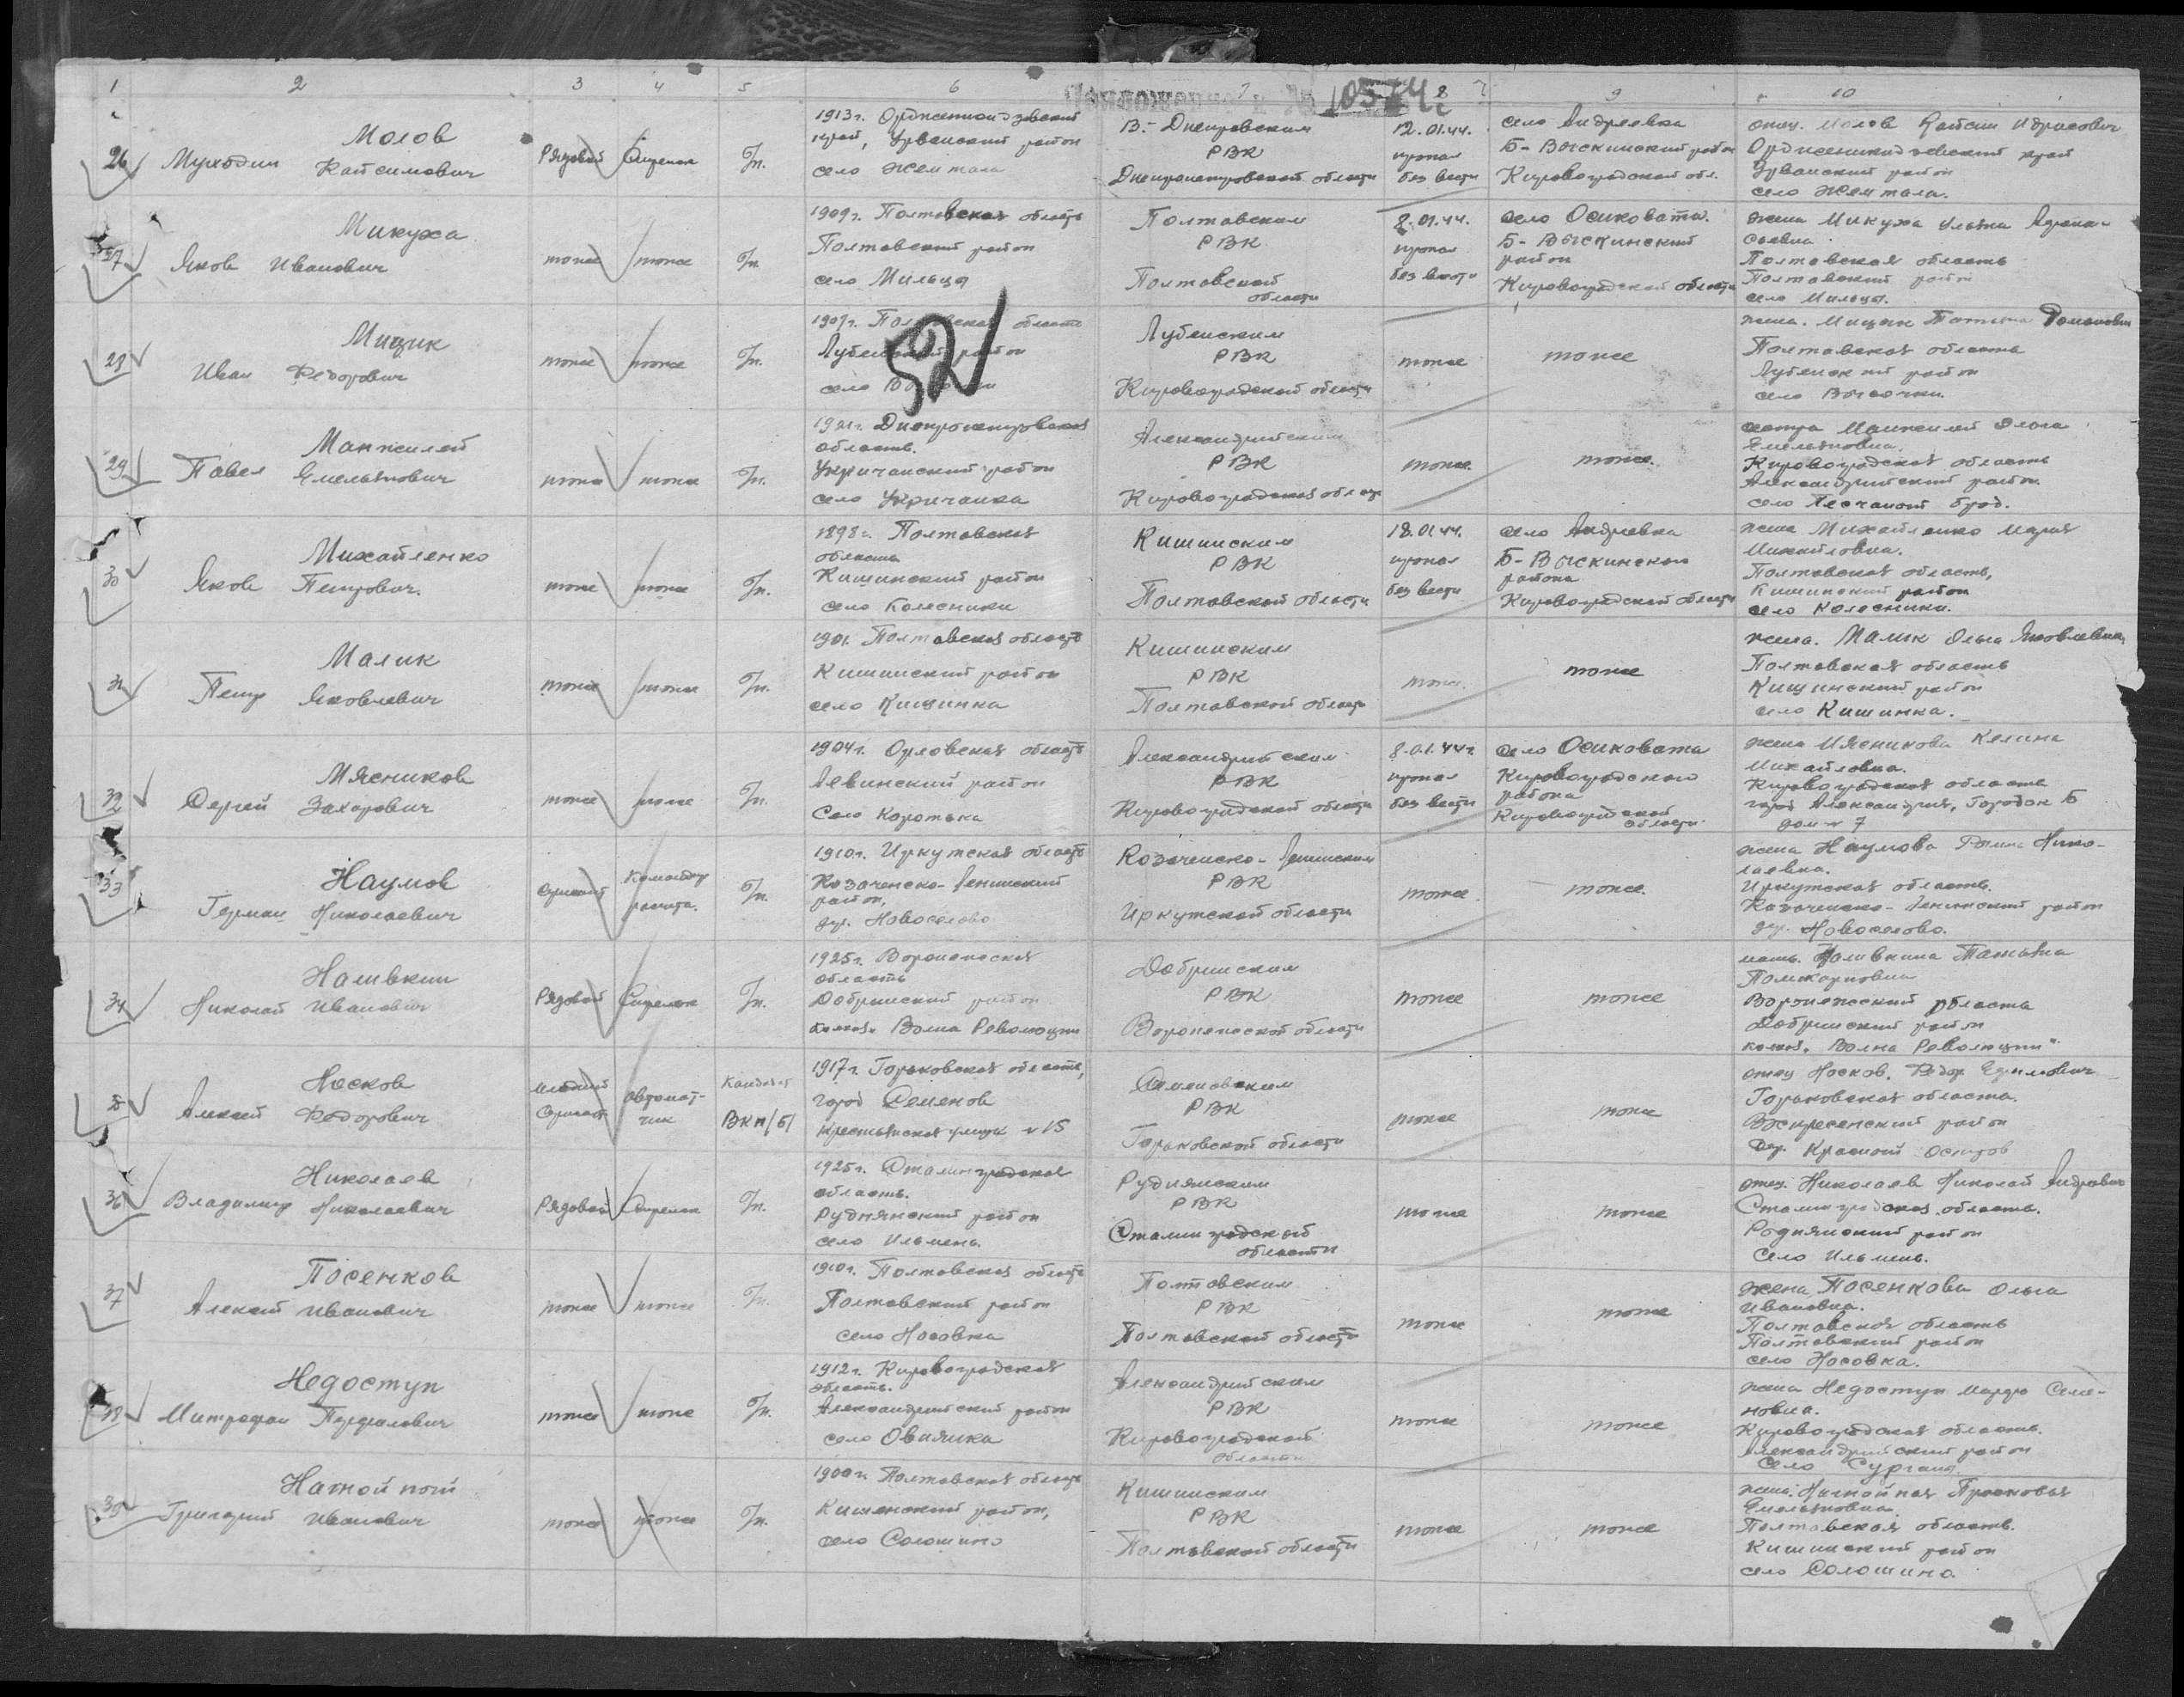 1 2 3 4 5 6 7 8 9 10
10574с
26 Молов
Муходин Кайсимович
Рядовой Стрелок Гр.
1913г. Орджоникидзевский
край, Урванский район
село Жемтала
В.-Днепровским
РВК
Днепропетровской области
12.01.44.
пропал
без вести
село Андреевка
Б-Выскинский район
Кировоградской обл.
отец. Молов Кайсим Идрисович
Орджоникидзевский край
Урванский район
село Жемтала.
27 Микужа
Яков Иванович
тоже тоже Гр.
1909г. Полтавская область
Полтавский район
село Мильца
Полтавским
РВК
Полтавской
области
8.01.44.
пропал
без вести
село Осиковата.
Б-Выскинский
район
Кировоградской области
жена Микужа Ульяна
Полтавская область
Полтавский район
село Мильца.
52
28 Мицик
Иван Федорович
тоже тоже Гр.
1907г. Полтавская область
Лубенский район
село
Лубенским
РВК
Кировоградской области
тоже
тоже
жена. Мицик Татьяна
Полтавская область
Лубенский район
село Высачки.
29 Манжилей
Павел Емельянович
тоже тоже Гр.
1921г. Днепропетровская
область.
Укричанский район
село Укричанка
Александрийским
РВК
Кировоградская область
тоже.
тоже.
сестра Манжилей Ольга
Емельяновна.
Кировоградская область
Александрийский район
село Песчаный брод.
30 Михайленко
Яков Петрович.
тоже тоже Гр.
1898г. Полтавская
область
Кишинский район
село Колесники
Кишинским
РВК
Полтавской области
18.01.44.
пропал
без вести
село Андреевка
Б-Выскинского
района
Кировоградской области
жена Михайленко Мария
Михайловна.
Полтавская область,
Кишинский район
село Колесники.
31 Малик
Петр Яковлевич
тоже тоже Гр.
1901. Полтавская область
Кишинский район
село Кишинка
Кишинским
РВК
Полтавской области
тоже.
тоже
жена. Малик Ольга Яковлевна
Полтавская область
Кишинский район
село Кишинка.
32 Мясников
Сергей Захарович
тоже тоже Гр.
1904г. Орловская область
Левинский район
Село Коротька
Александрийским
РВК
Кировоградской области
8.01.44г.
пропал
без вести
село Осиковата
Кировоградского
района
Кировоградской
области.
жена Мясникова Келина
Михайловна.
Кировоградская область
город Александрия, Городок Б
дом № 7
33 Наумов
Герман Николаевич
Сержант Командир
расчета. Гр.
1910г. Иркутская область
Козаченско-Ленинский
район,
дер. Новоселово
Козаченско-Ленинским
РВК
Иркутской области
тоже.
тоже.
жена Наумова Нико-
лаевна.
Иркутская область.
Казаченско-Ленинский район
дер. Новоселово.
34 Наливкин
Николай Иванович
Рядовой Стрелок Гр.
1925г. Воронежская
область
Добринский район
колхоз. Волна Революции
Добринским
РВК
Воронежской области
тоже
тоже
мать. Наливкина Татьяна
Поликарповна
Воронежский область
Добринский район
колхоз. Волна Революции"
35 Носков
Алексей Федорович
младший
Сержант
автомат-
чик
Кандидат
ВКП/б/
1917г. Горьковская область,
город Семенов
Крестьянская улица № 15
Семеновским
РВК
Горьковской области
тоже
тоже
отец Носков. Федор Ефимович
Горьковская область.
Воскресенский район
Дер. Красный Остров
36 Николаев
Владимир Николаевич
Рядовой Стрелок Гр.
1925г. Сталинградская
область.
Руднянский район
село Ильмень.
Руднямским
РВК
Сталинградской
области
тоже
тоже
отец. Николаев Николай Андреевич
Сталинградская область.
Роднянский район
Село Ильмень.
37 Посенков
Алексей Иванович
тоже тоже Гр.
1910г. Полтавская область
Полтавский район
село Носовка
Полтавским
РВК
Полтавской области
тоже
тоже
жена Посенкова Ольга
Ивановна.
Полтавская область
Полтавский район
село Носовка.
38 Недоступ
Митрофан
тоже тоже Гр.
1912г. Кировоградская
область.
Александрийский район
село Овнянка
Александрийским
РВК
Кировоградской
области
тоже
тоже
жена Недоступ Марфа Семе-
новна.
Кировоградская область.
Александрийский район
Село
39 Нагнойный
Григорий Иванович
тоже тоже Гр.
1900г. Полтавская область
Кишенский район,
село Солошино
Кишинским
РВК
Полтавской области
тоже
тоже
жена. Нагнойная Прасковья
Емельяновна
Полтавская область.
Кишинский район
село Солошино.